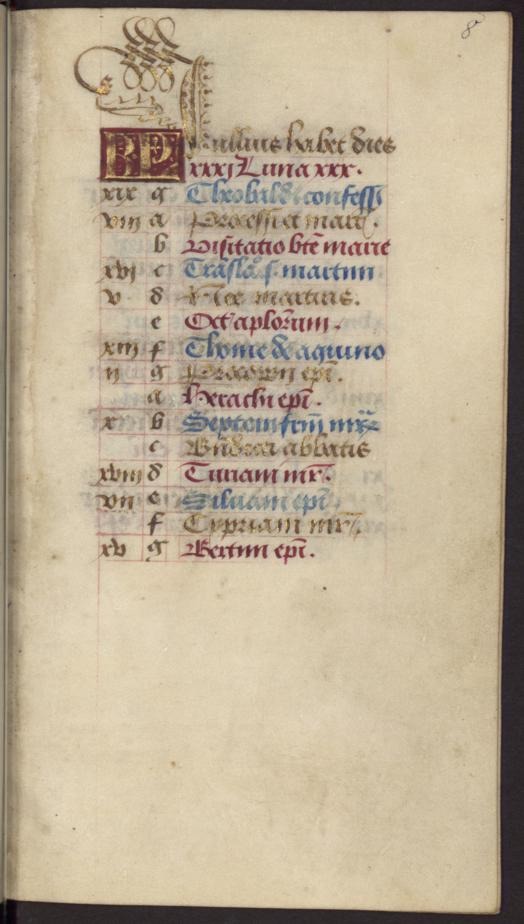 8
KL Iullius habet dies
xxxj Luna xxx.
xix g Theobaldi confess
viij a Processi et mart.
b Visitatio bte marie
xvj c Trãsla. s. martini
v d martiris.
e Oct aplorum.
xiij f Thome de aquino
ij g Procopij epi.
a Heraclii epi.
x b Septem frm mr
c abbatis
xviij d Turiani mr.
vij e Siluani epi
f Cypriani mr.
xv g Bertini epi.